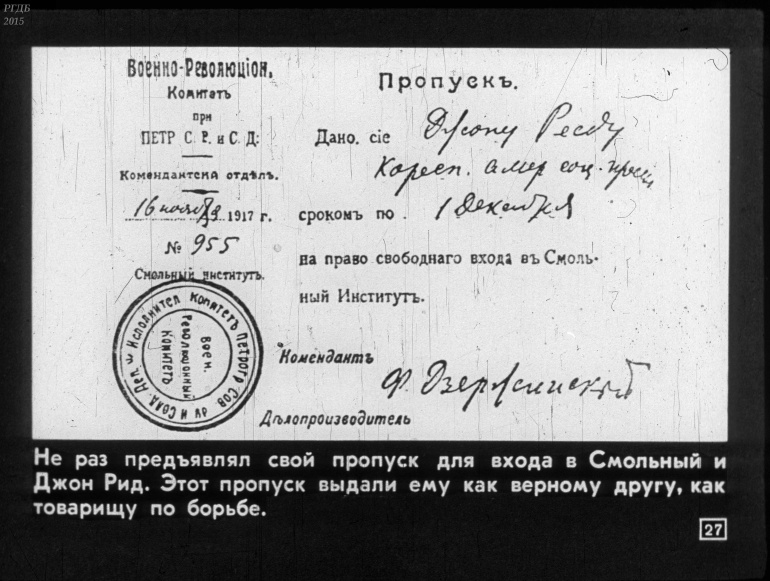 РГДБ
2015
Военно-Революціон.
Комитетъ
при
ПЕТР С. Р. и С. Д:
Комендантскa отдѣлъ.
16 ноября 1917 г.
№ 955
Смольный институтъ.
Исполнител Комитетъ Петрогр Сов и Солд. Деп.
Воен.
Революционный
Комитетъ
Пропускъ.
Дано. сіе Джону Рееду
Коресп. амер соц. прессы
срокомъ по . 1 Декабря
на право свободнаго входа въ Смоль-
ный Институтъ.
Комендантъ
Ф. Дзержинский
Дѣлопроизводитель
Не раз предъявлял свой пропуск для входа в Смольный и
Джон Рид. Этот пропуск выдали ему как верному другу, как
товарищу по борьбе.
27